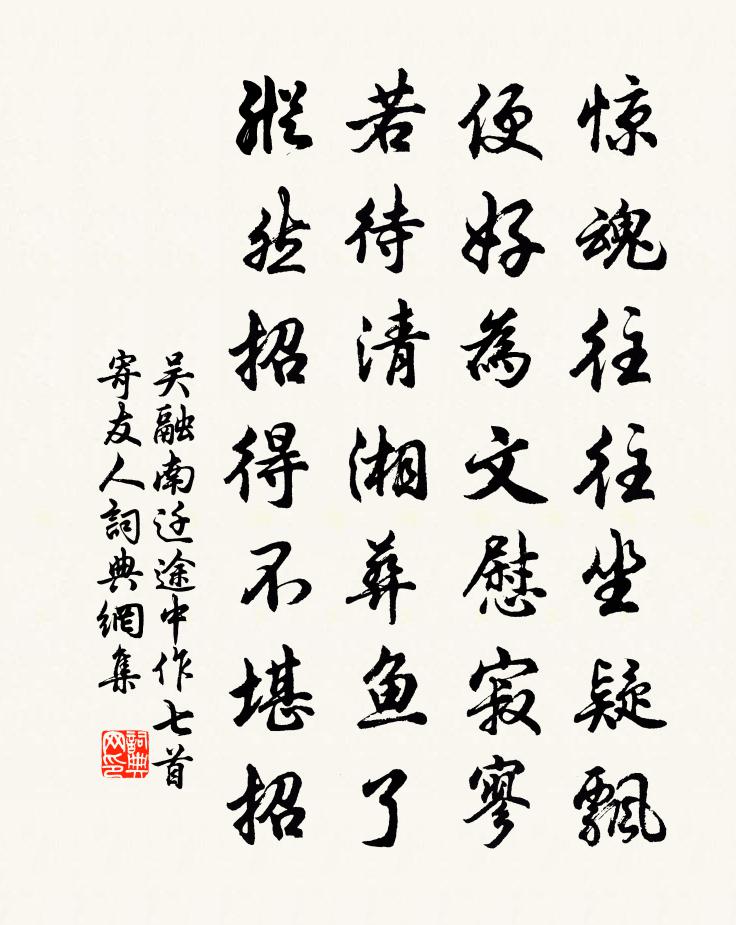 惊魂往往坐疑飘
便好為文慰寂寥
若待清湘葬鱼了
縱然招得不堪招
吴融南迁途中作七首
寄友人詞典網集
詞典
网印